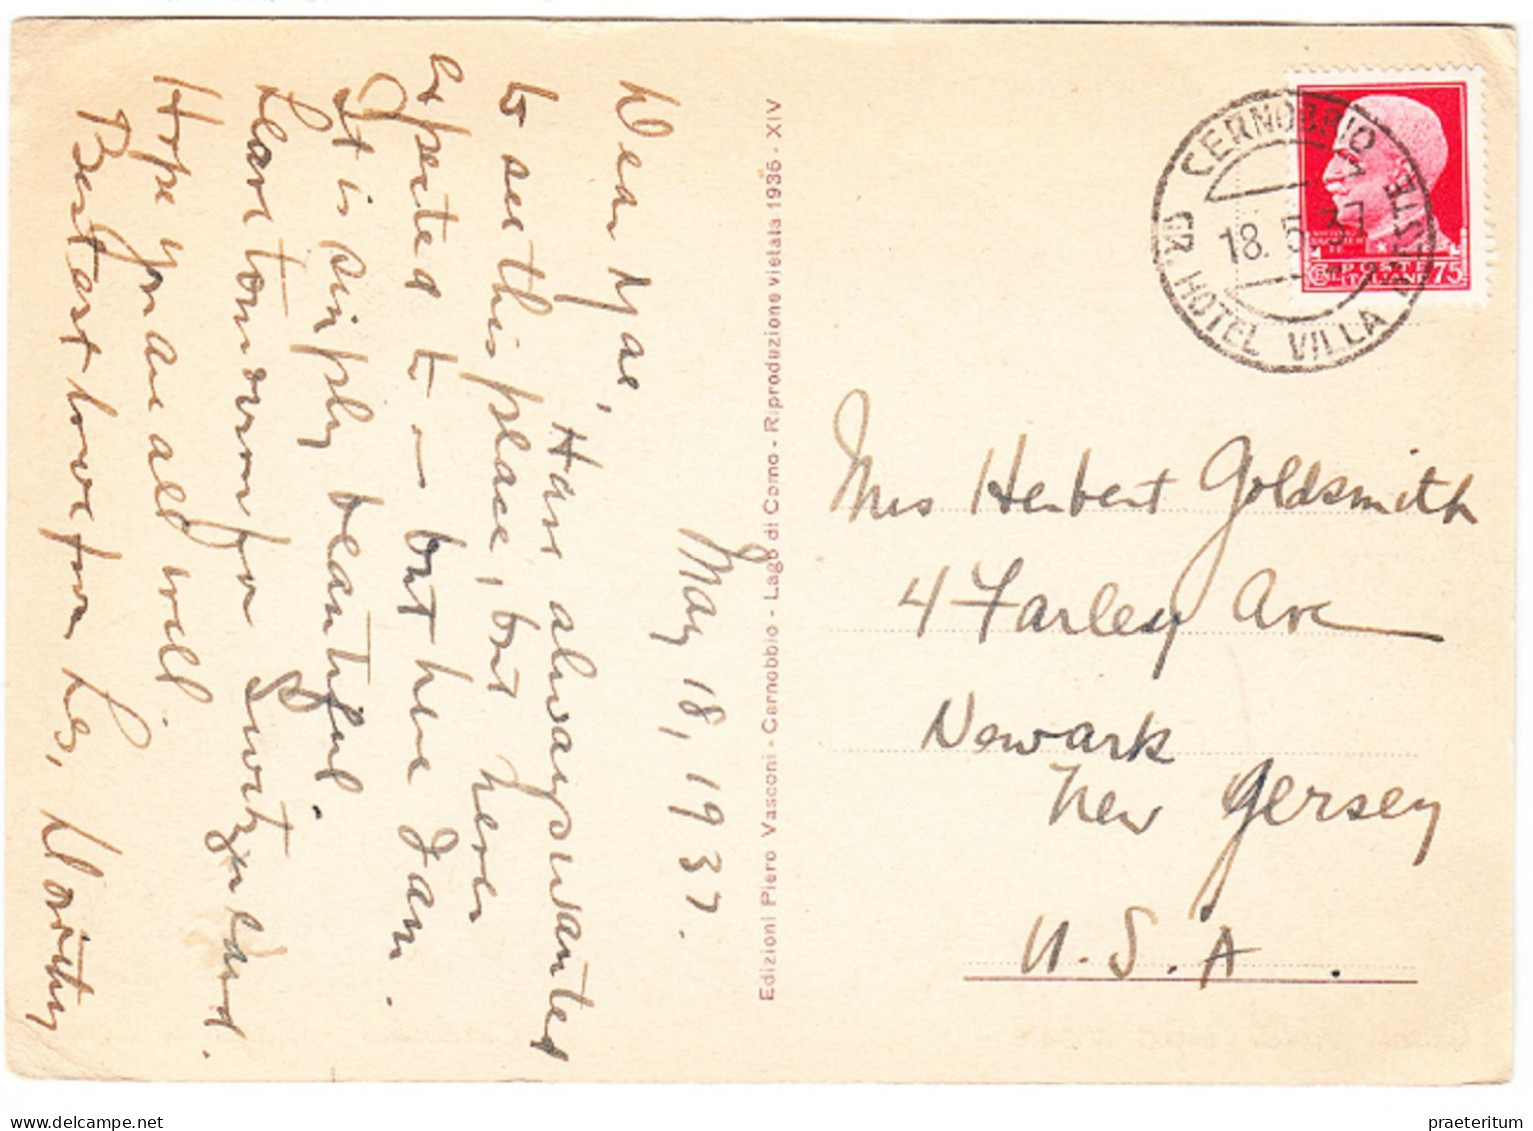 May 18, 1937.
Dear Mae,
Have always wanted
to see this place, but never
expected to — but here I am.
It is simply beautiful.
Leave tomorrow for Switzerland.
Hope you are all well.
Best love from Les, Dorothy
Edizioni Piero Vasconi - Cernobbio - Lago di Como - Riproduzione vietata 1936 - XIV
CERNOBBIO
18. 5. 37
GRD. HOTEL VILLA D'ESTE
POSTE
ITALIANE
75
Mrs Herbert Goldsmith
4 Farley Ave
Newark
New Jersey
U.S.A.
delcampe.net
praeteritum